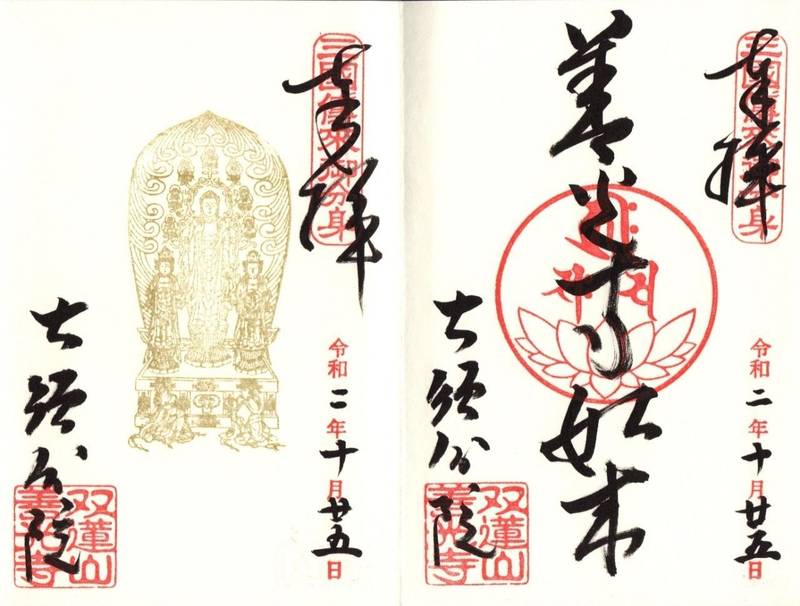 奉拝
三國傳来御分身
令和二年十月廿五日
善光寺如来
双蓮山
善光寺
奉拝
三國傳来御分身
令和二年十月廿五日
双蓮山
善光寺